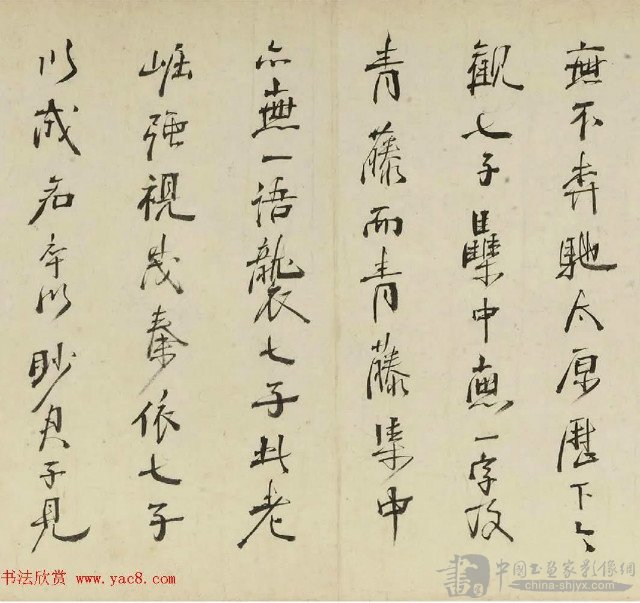 無不奔馳太原歷下今
觀七子雧中無一字攻
青藤而青藤集中
亦無一語襲七子此老
崛強視茂秦依七子
以成名卒以眇君子見
书法欣赏 www.yac8.com
中国书画家影像网
china-shjyx.com